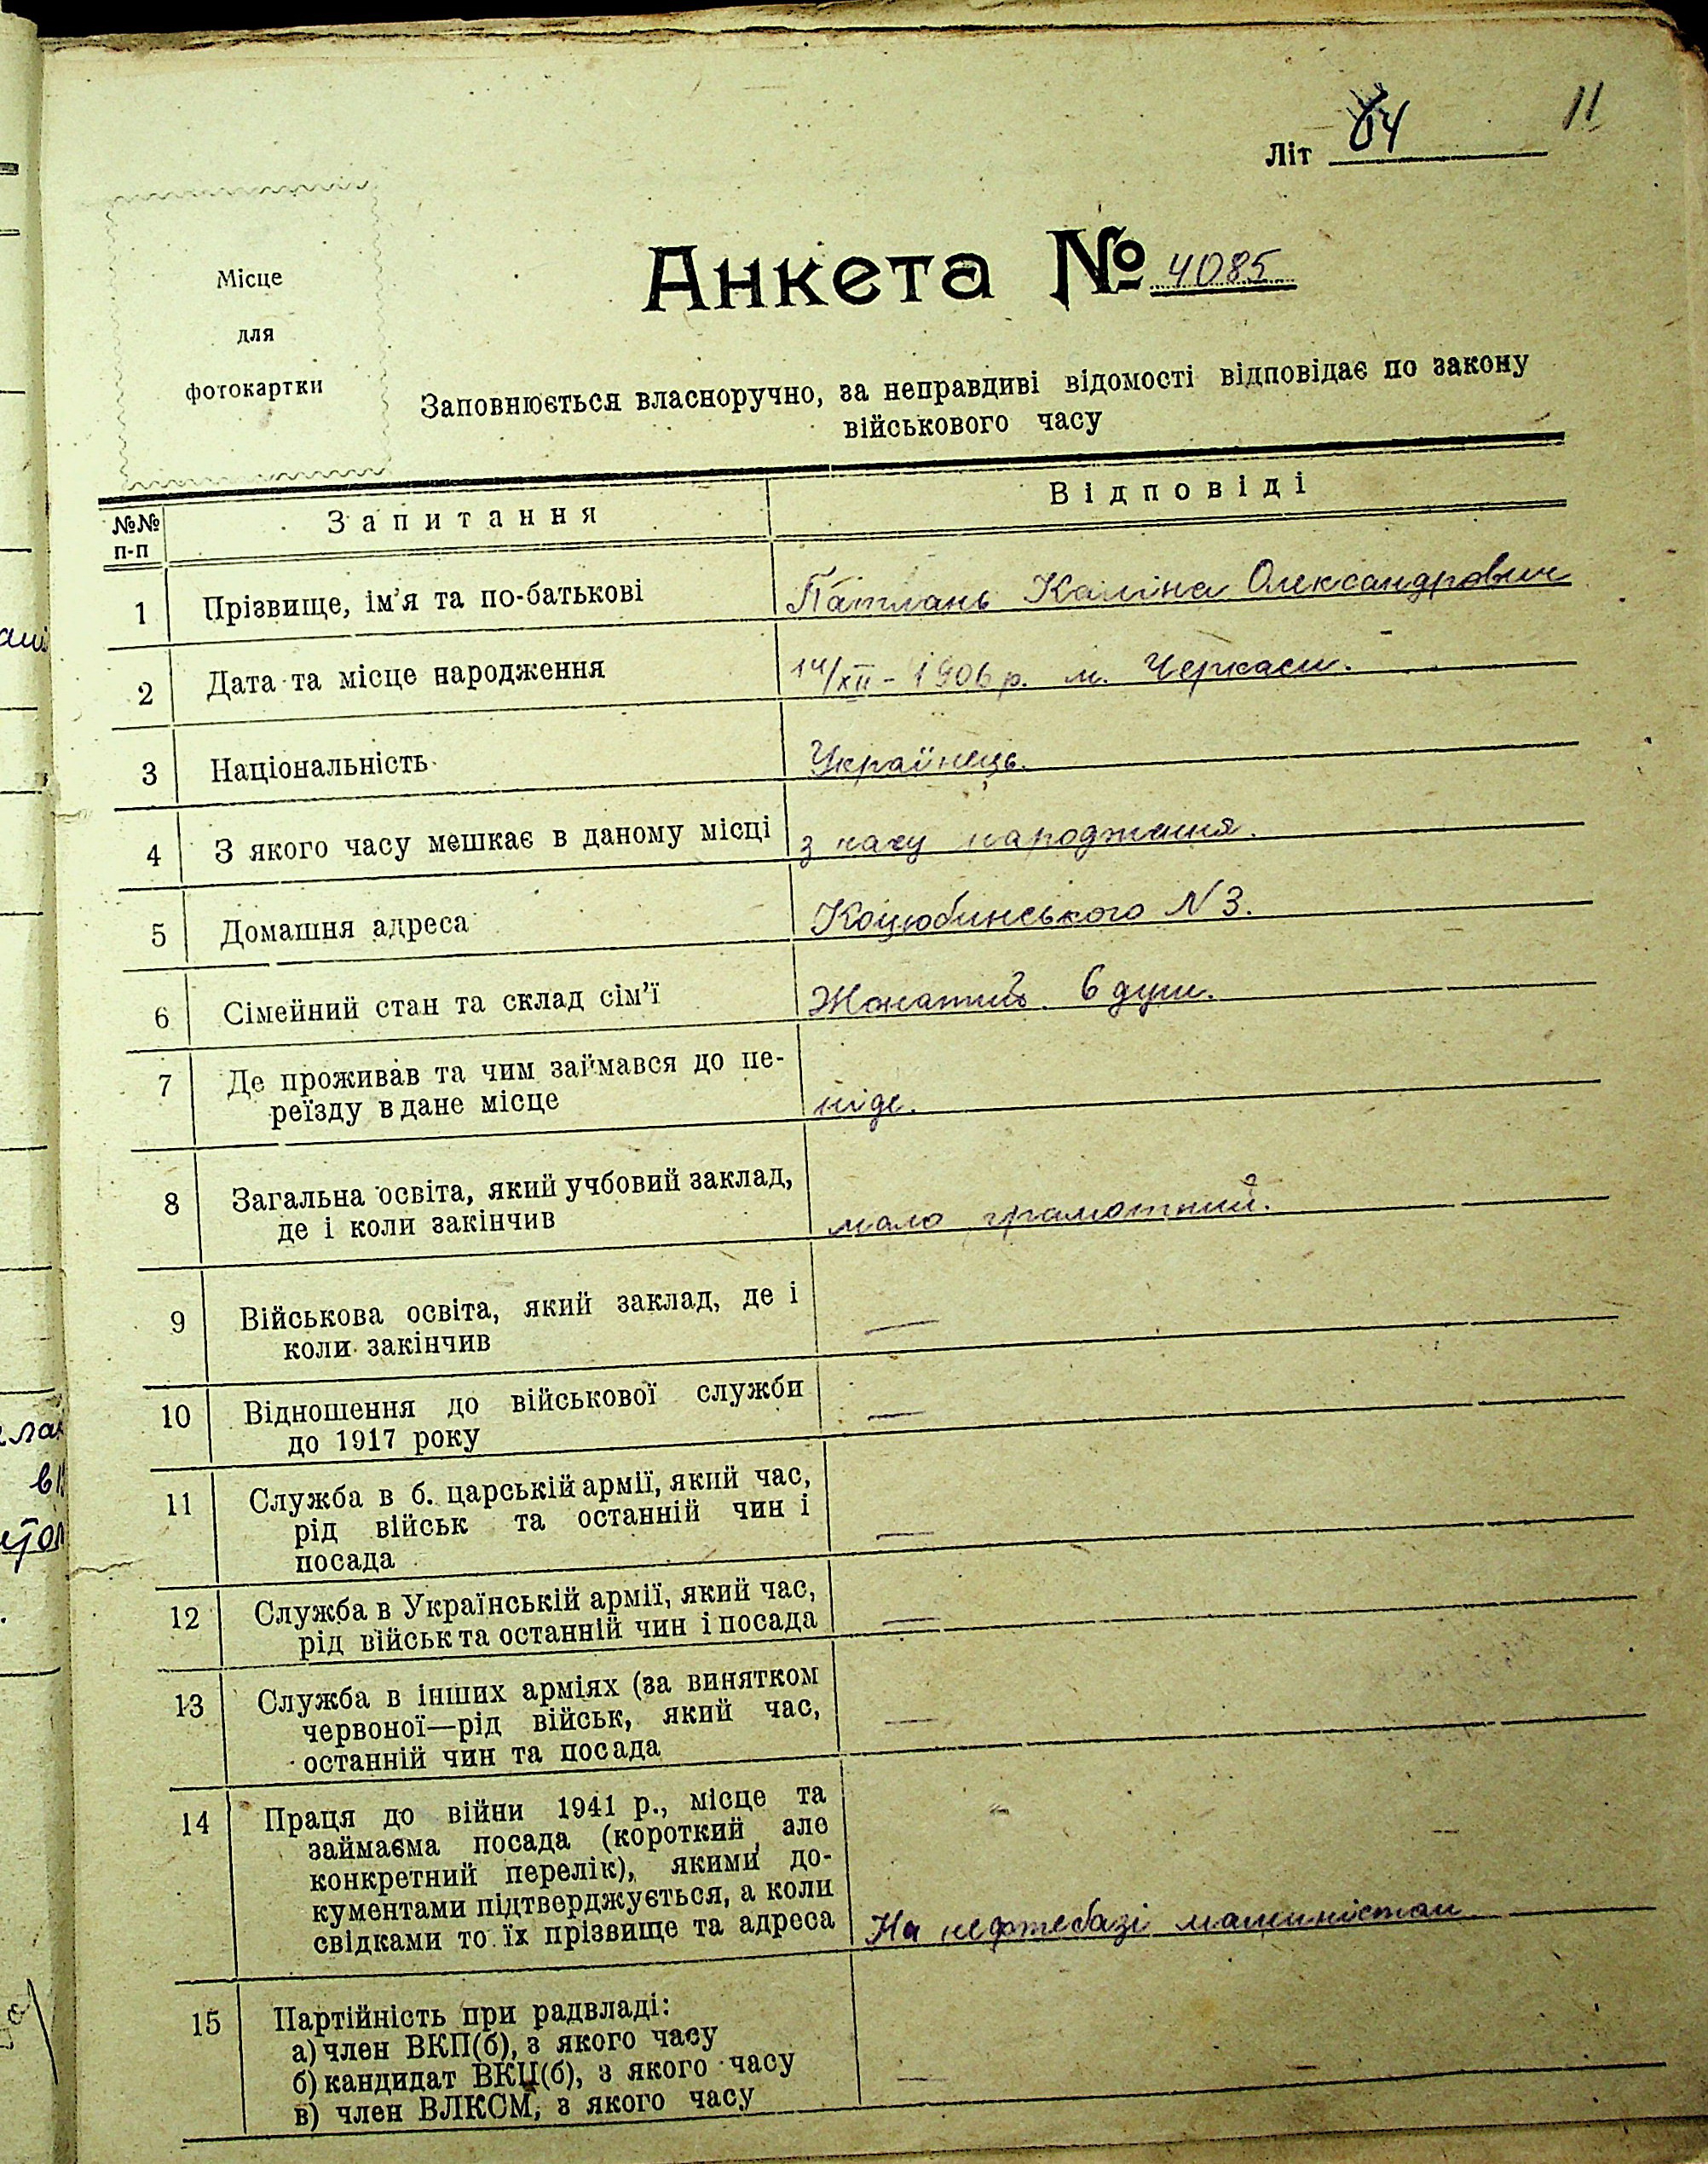 11
Літ 64
Місце
для
фотокартки
Анкета № 4085
Заповнюється власноручно, за неправдиві відомості відповідає по закону
військового часу
№№ п-п Запитання Відповіді
1 Прізвище, ім'я та по-батькові Патлань Каліна Олександрович
2 Дата та місце народження 14/XII - 1906 р. м. Черкаси.
3 Національність Українець.
4 З якого часу мешкає в даному місці з часу народження.
5 Домашня адреса Коцюбинського N 3.
6 Сімейний стан та склад сім'ї Жонатий. 6 душ.
7 Де проживав та чим займався до пе-
реїзду в дане місце ніде.
8 Загальна освіта, який учбовий заклад,
де і коли закінчив мало грамотний.
9 Військова освіта, який заклад, де і
коли закінчив —
10 Відношення до військової служби
до 1917 року —
11 Служба в б. царській армії, який час,
рід військ та останній чин і
посада —
12 Служба в Українській армії, який час,
рід військ та останній чин і посада —
13 Служба в інших арміях (за винятком
червоної—рід військ, який час,
останній чин та посада —
14 Праця до війни 1941 р., місце та
займаєма посада (короткий, але
конкретний перелік), якими до-
кументами підтверджується, а коли
свідками то їх прізвище та адреса На нефтебазі машиністом
15 Партійність при радвладі:
а) член ВКП(б), з якого часу
б) кандидат ВКП(б), з якого часу —
в) член ВЛКСМ, з якого часу